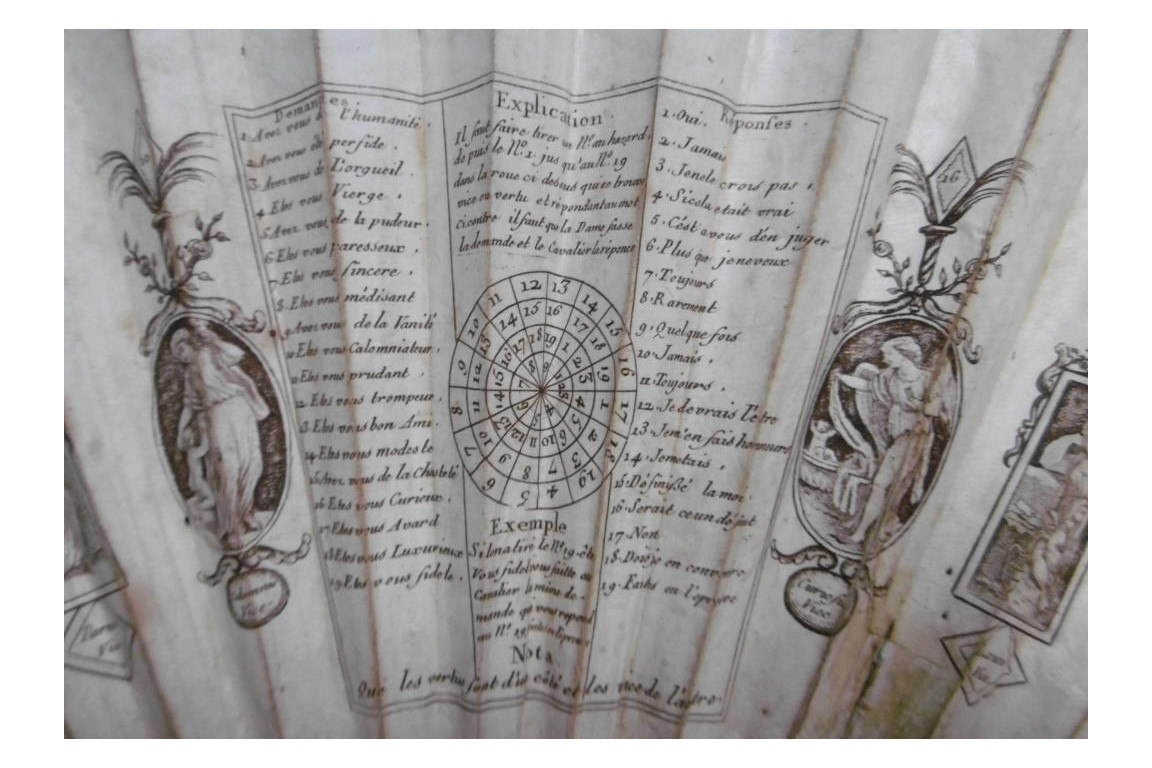 Demandes
1. Avez vous de l'humanité.
2. Avez vous été perfide.
3. Avez vous de L'orgueil.
4. Etes vous Vierge.
5. Avez vous de la pudeur.
6. Etes vous paresseux.
7. Etes vous sincere.
8. Etes vous médisant
9. Avez vous de la Vanité
10. Etes vous Calomniateur.
11. Etes vous prudant.
12. Etes vous trompeur.
13. Etes vous bon Ami.
14. Etes vous modeste
15. Avez vous de la Chasteté
16. Etes vous Curieux.
17. Etes vous Avard
18. Etes vous Luxurieux
19. Etes vous fidele.
Explication
Il faut faire tirer un N.º au hazard,
depuis le Nº 1. jusqu'au Nº 19
dans la roue ci dessus qui se trouve
vice ou vertu et répondant au mot
ci contre il faut que la Dame fasse
la demande et le Cavalier la réponce
12 13 14 15 16 17 18 19 2 3 4 5 6 7 8 9 10 11
15 16 17 18 19 1 2 3 7 8 9 10 11 12 13 14
Exemple
Si lon a tiré le Nº 19. êtes
Vous fidel vous faitte au
Cavalier la mime de-
mande qui vous repond
au Nº 19
Nota
Que les vertus sont d'un côté et les vice de l'autre
Réponses
1. Oui.
2. Jamais
3. Je ne le crois pas.
4. Si cela etait vrai
5. C'est a vous d'en juger
6. Plus que je ne veux
7. Toujours
8. Rarement
9. Quelque fois
10. Jamais.
11. Toujours.
12. Je devrais l'être
13. Jem'en fais honneur
14. Jemetais.
15. Définissé la moi
16. Serait ce un défaut
17. Non
18. Doisje en convenir
19. Faites en l'epreuve
16
Vice
Curiosité
Vice